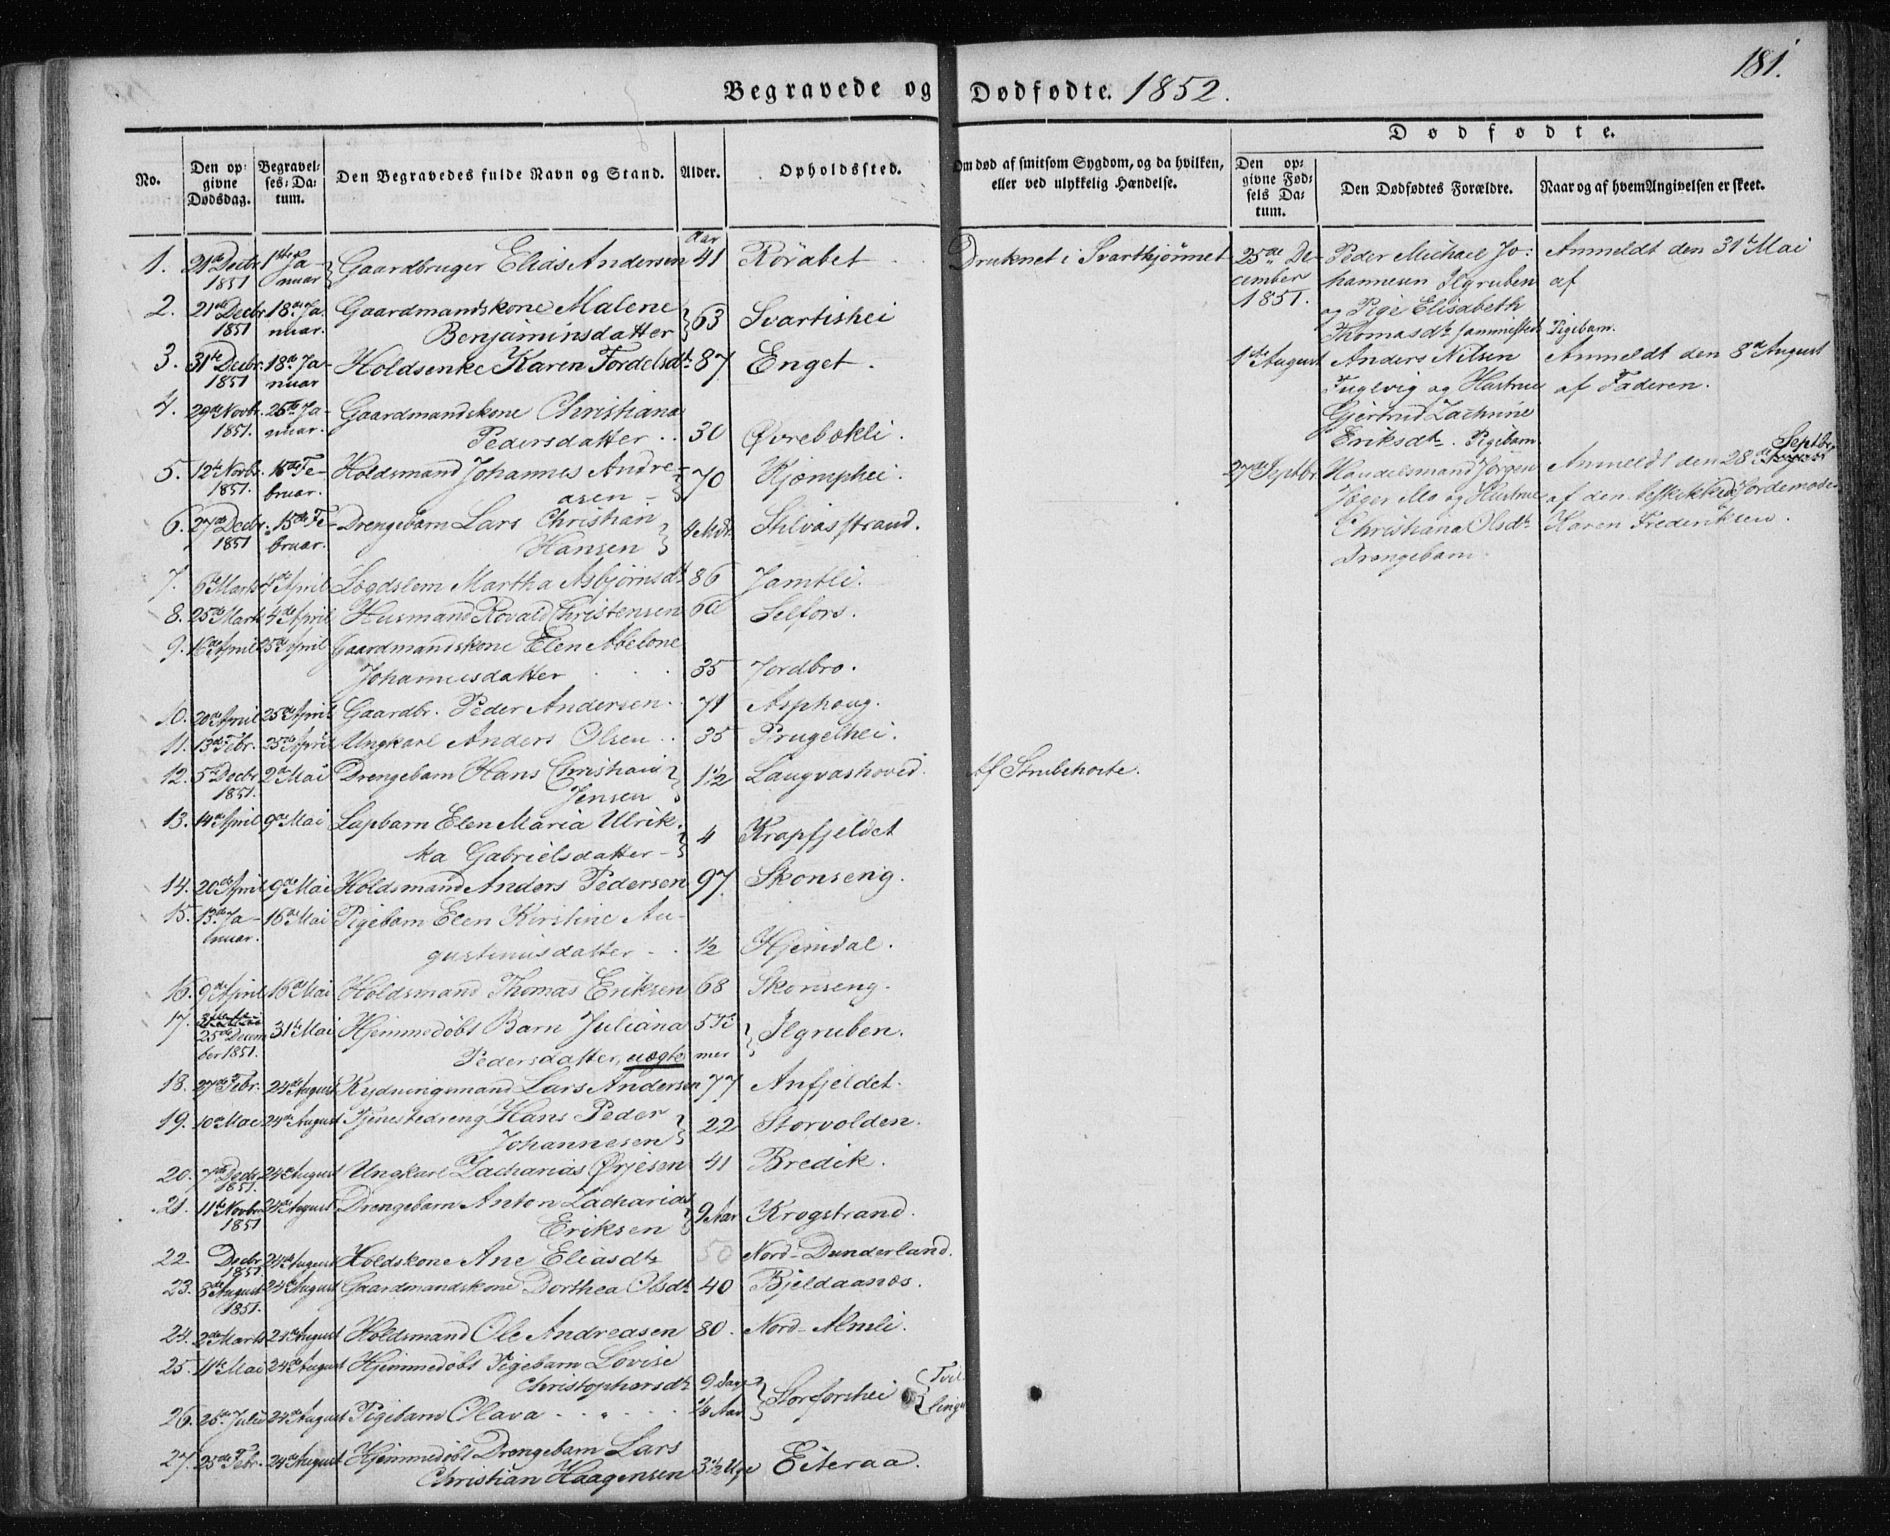 181.
Begravede og Dødfødte. 1852.
No.
Den op-
givne
Dødsdag.
Begravel-
ses-Da-
tum.
Den Begravedes fulde Navn og Stand.
Alder.
Opholdssted.
Om død af smitsom Sygdom, og da hvilken,
eller ved ulykkelig Hændelse.
Dødfødte.
Den op-
givne Fød-
sels Da-
tum.
Den Dødfødtes Forældre.
Naar og af hvem Angivelsen er skeet.
Aar
1. 21de Decbr. 1ste Ja- Gaardbruger Elias Andersen 41 Rörabet Druknet i Svarttjönnet
1851 nuar
2. 21de Decbr. 18de Ja- Gaardmandskone Malene
1851 nuar. Benjaminsdatter 63 Svartishei
3. 31te Decbr. 18de Ja- Holdsenke Karen Tordelsdt. 87 Enget.
1851 nuar
4. 29de Novbr. 25de Ja- Gaardmandskone Christiana
1851. nuar. Pedersdatter 30 Øvrebækli.
5. 12te Novbr. 15de Fe- Holdsmand Johannes Andre-
1851. bruar. asen 70 Kjæmphei.
6. 27de Decbr. 15de Fe- Drengebarn Lars Christian
1851 bruar. Hansen 4 Mdr. Stilvasstrand.
7. 6te Marts 4de April Lægdslem Martha Asbjørnsdt. 86 Jamtli.
8. 25de Marts 4de April Husmand Rovald Christensen 60 Selfors.
9. 16de April 25de April Gaardmandskone Elen Abelone
Johannesdatter 35 Jordbro.
10. 20de April 25de April Gaardbr. Peder Andersen. 71 Asphoug.
11. 13de Febr. 25de April Ungkarl Anders Olsen 35 Prugelhei.
12. 5te Decbr 2den Mai Drengebarn Hans Christian
1851. Jensen 1½ Langvashoved. Af Strubehoste.
13. 14de April 9de Mai Lapbarn Elen Maria Ulrik-
ka Gabrielsdatter 4 Krapfjeldet
14. 20de April 9de Mai Holdsmand Anders Pedersen 97 Skonseng.
15. 13de Ja- 16de Mai Pigebarn Elen Kirstine Au-
nuar. gustinusdatter 1½ Hjemdal.
16. 9de April 16de Mai Holdsmand Thomas Eriksen 68 Skonseng.
17. 25de Decem- 31te Mai Hjemmedøbt Barn Juliana 5 Ti- Ilgruben.
ber 1851. Pedersdatter, uægte mer
18. 27de Febr. 24de August Rydningsmand Lars Andersen 77 Anfjeldet.
19. 10de Mai 24de August Tjenestedreng Hans Peder
Johannesen 22 Storvolden.
20. 7de Decbr. 24de August Ungkarl Zacharias Ørjesen 41 Bredik.
1851.
21. 11te Novbr. 24de August Drengebarn Anton Zacharias
1851 Eriksen 9 Aar Krogstrand.
22 Decbr. 24de August Holdskone Ane Eliasdt. 50 Nord-Dunderland.
1851
23. 8de August 24de August Gaardmandskone Dorthea Olsdt. 40 Bjeldaanæs.
1851.
24. 2de Marts 24de August Holdsmand Ole Andreasen 80. Nord-Almli.
25. 11te Mai 24de August Hjemmedøbt Pigebarn Lovise
Christophersdt. 9 Dage Storforshei Tvil-
26. 25de Juli 24de August Pigebarn Olava 1/4 Aar linger
27. 23de Febr. 24de August Hjemmedøbt Drengebarn Lars
Christian Haagensen 3½ Uge Eiteraa.
25de De-
cember
1851.
Peder Michael Jo-
hannesen Ilgruben
og Pige Elisabeth
Thomasdt. sammesteds
Anmeldt den 31te Mai
af
Pigebarn.
1ste August
Anders Nilsen
Fuglvig og Hustrue
Gjertrud Zachrine
Eriksdt. Pigebarn.
Anmeldt den 8de August
af Faderen.
27de Septbr.
Handelsmand Jörgen
Jæger Mo og Hustrue
Christiana Olsdt.
Drengebarn.
Septbr.
Anmeldt den 28de August
af den beskikkede Jordemoder
Karen Frederiksen.